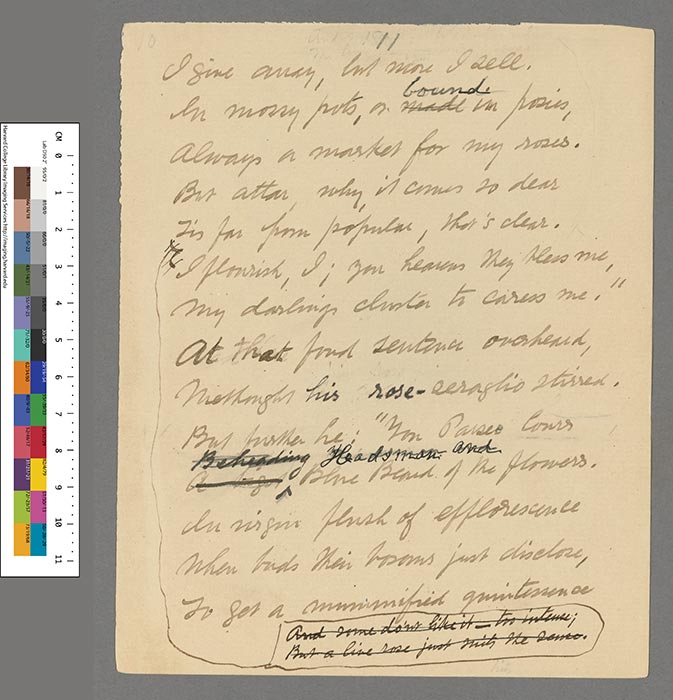 10
11
I give away, but more I sell.
bound
In mossy pots, or made in posies,
Always a market for my roses.
But attar, why, it comes so dear
Tis far from popular, that's clear.
I flourish, I; yon heavens they bless me,
My darlings cluster to caress me."
At that fond sentence overheard,
Methought his rose-seraglio stirred.
But further he: "Yon Parsee lours
Beheading Headsman and
A Blue Beard of the flowers.
In virgin flush of efflorescence
When buds their bosoms just disclose,
To get a mummified quintessence
And some don't like it — too intense;
But a live rose just suits the sense.
CM 0 1 2 3 4 5 6 7 8 9 10 11
Harvard College Library Imaging Services http://imaging.harvard.edu